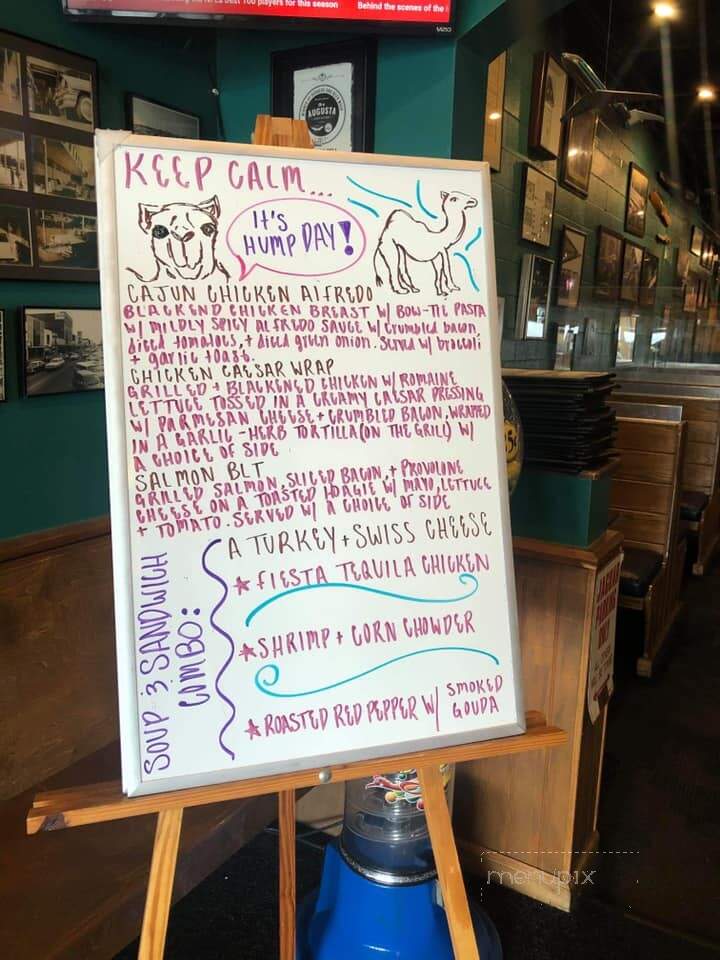 best 100 players for this season
Behind the scenes of the
VIZIO
AUGUSTA
KEEP CALM...
IT'S
HUMP DAY!
CAJUN CHICKEN AlFREDO
BLACKEND CHICKEN BREAST W/ BOW-TIE PASTA
W/ MILDLY SPICY ALFREDO SAUCE W/ crumbled bacon,
diced tomatoes, + diced green onion. Served w/ broccoli
+ garlic toast.
CHICKEN CAESAR WRAP
GRILLED + BLACKENED CHICKEN W/ ROMAINE
LETTUCE TOSSED IN A CREAMY CAESAR DRESSING
W/ PARMESAN CHEESE + CRUMBLED BACON, WRAPPED
IN A GARLIC-HERB TORTILLA (ON THE GRILL) W/
A CHOICE OF SIDE
SALMON BLT
GRILLED SALMON, SLICED BACON, + PROVOLONE
CHEESE ON A TOASTED HOAGIE W/ MAYO, LETTUCE
+ TOMATO. SERVED W/ A CHOICE OF SIDE
SOUP & SANDWICH
COMBO:
A TURKEY + SWISS CHEESE
★ FIESTA TEQUILA CHICKEN
★ SHRIMP + CORN CHOWDER
★ ROASTED RED PEPPER W/ SMOKED
GOUDA
PARKING
ONLY
menupix